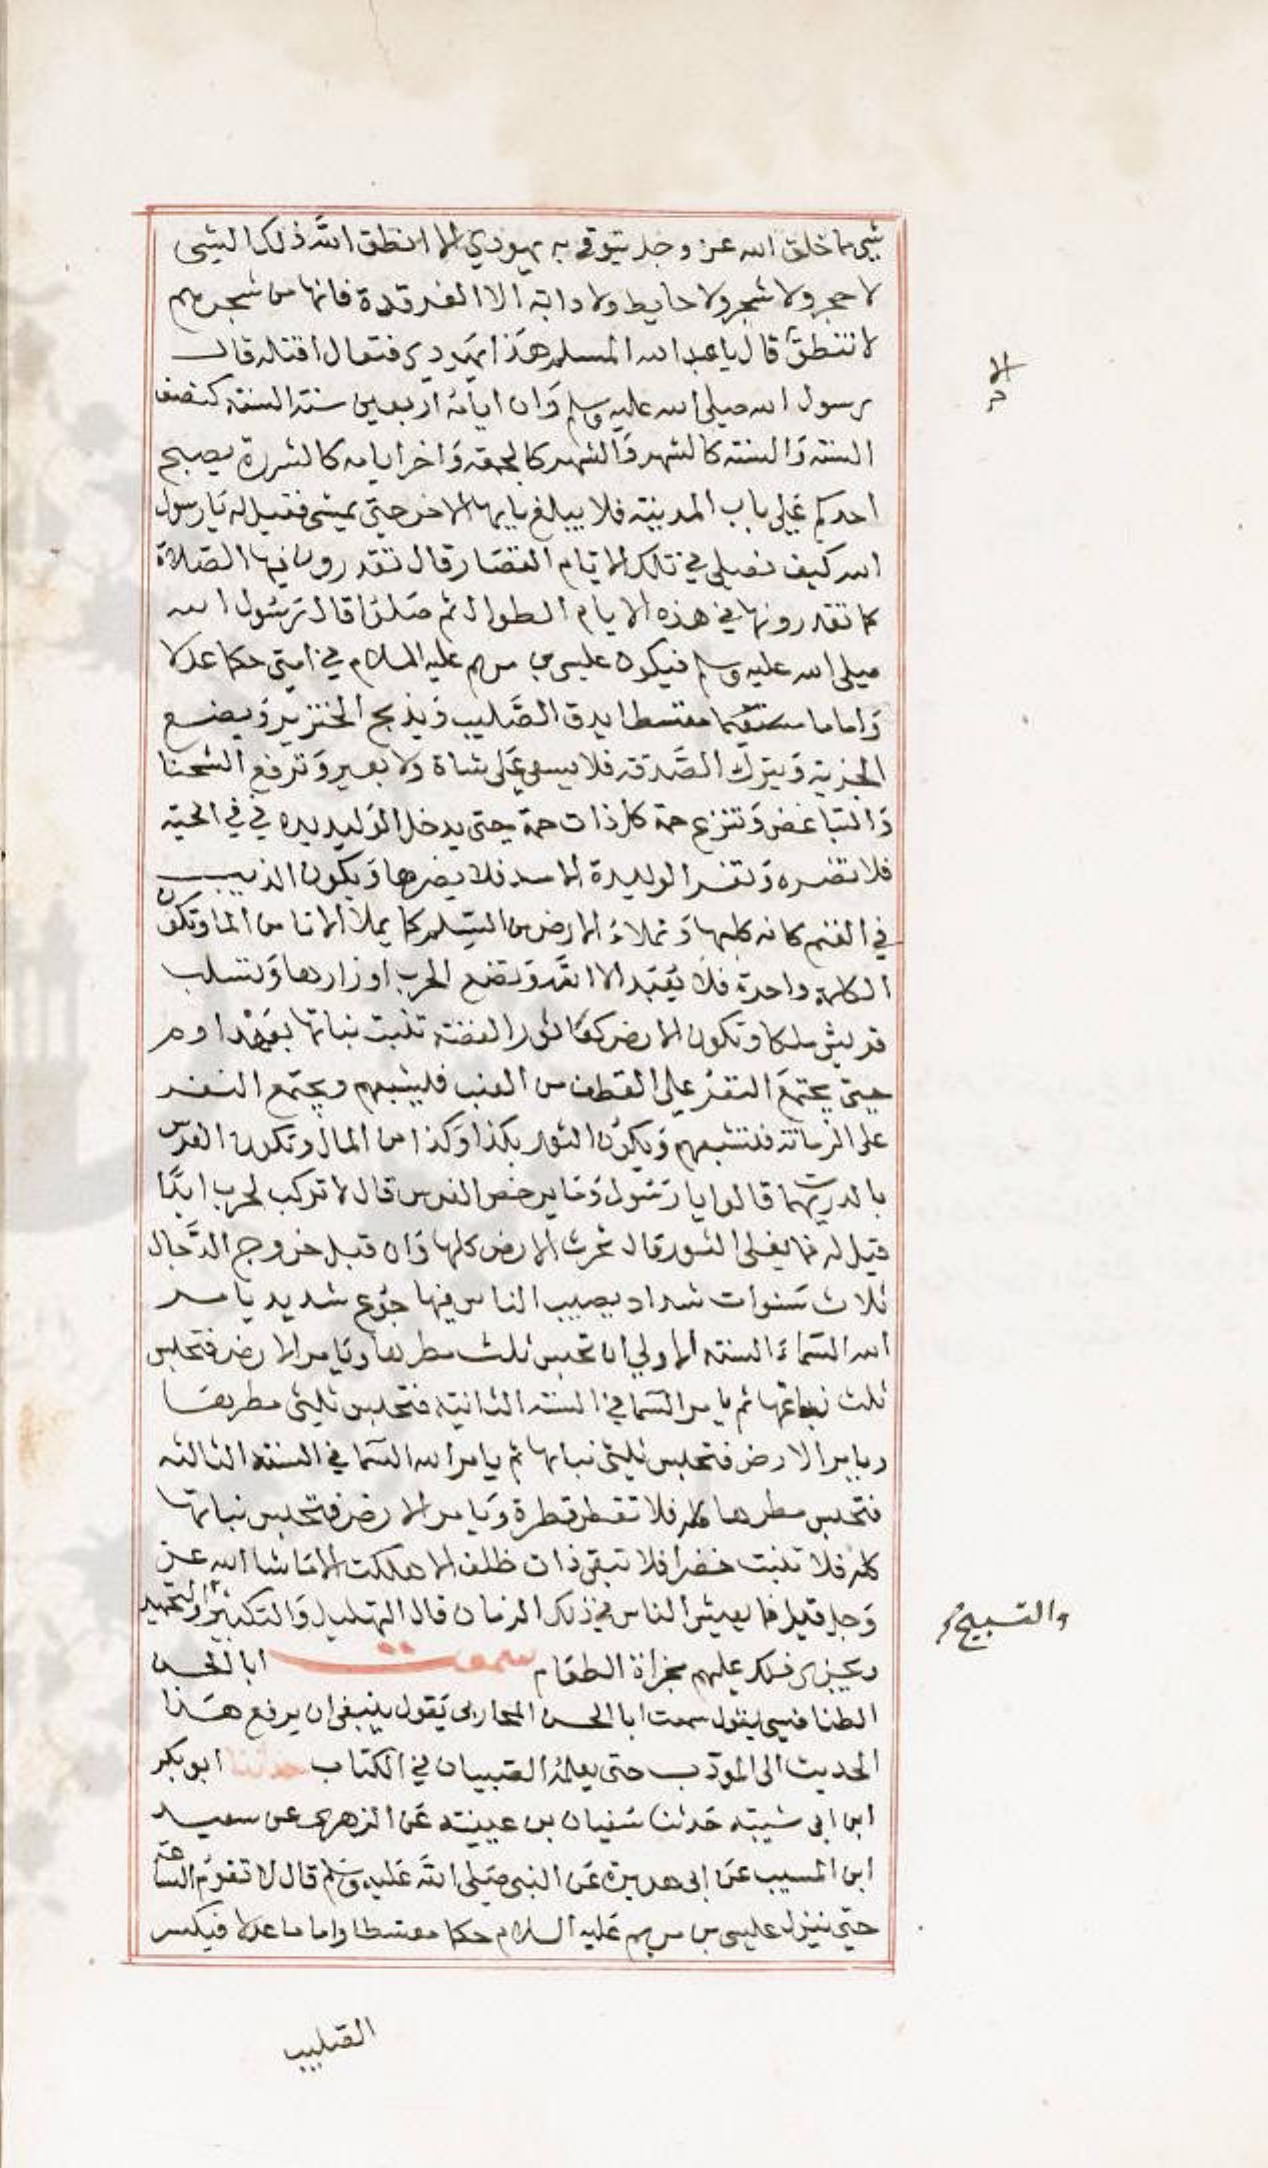 شيء مما خلق الله عز وجل يتوقى به يهودي الا انطق الله ذلك الشيء
لا حجر ولا شجر ولا حايط ولا دابة الا الغرقدة فانها من شجرهم
لا تنطق قال يا عبد الله المسلم هذا يهودي فتعال اقتله قال
الا
رسول الله صلى الله عليه وسلم وان ايامه اربعين سنة السنة كنصف
السنة والسنة كالشهر والشهر كالجمعة واخر ايامه كالشررة يصبح
احدكم على باب المدينة فلا يبلغ بابها الاخر حتى يمشي فقيل له يا رسول
الله كيف نصلي في تلك الايام القصار قال تقدرون فيها الصلاة
كما تقدرونها في هذه الايام الطوال ثم صلوا قال رسول الله
صلى الله عليه وسلم فيكون عيسى بن مريم عليه السلام في امتي حكما عدلا
واماما مقسطا يدق الصليب ويذبح الخنزير ويضع
الجزية ويترك الصدقة فلا يسعى على شاة ولا بعير وترفع الشحنا
والتباغض وتنزع حمة كل ذات حمة حتى يدخل الوليد يده في في الحية
فلا تضره وتفر الوليدة الاسد فلا يضرها ويكون الذيب
في الغنم كانه كلبها وتملاء الارض من السلم كما يملا الانا من الما وتكون
الكلمة واحدة فلا يعبد الا الله وتضع الحرب اوزارها وتسلب
قريش ملكا وتكون الارض كفاثور الفضة تنبت نباتها بعهد ادم
حتى يجتمع النفر على القطف من العنب فيشبعهم ويجتمع النفر
على الرمانة فتشبعهم ويكون الثور بكذا وكذا من المال وتكون الفرس
بالدريهمات قالوا يا رسول وما يرخص الفرس قال لا تركب لحرب ابدا
قيل له فما يغلي الثور قال تحرث الارض كلها وان قبل خروج الدجال
ثلاث سنوات شداد يصيب الناس فيها جوع شديد يامر
الله السماء السنة الاولى ان تحبس ثلث مطرها ويامر الارض فتحبس
ثلث نباتها ثم يامر السما في السنة الثانية فتحبس ثلثي مطرها
ويامر الارض فتحبس ثلثي نباتها ثم يامر الله السما في السنة الثالثة
فتحبس مطرها كله فلا تقطر قطرة ويامر الارض فتحبس نباتها
كله فلا تنبت خضرا فلا تبقى ذات ظلف الا هلكت الا ما شا الله عز
وجل قيل فما يعيش الناس في ذلك الزمان قال التهليل والتكبير والتحميد
والتسبيح
ويجزي ذلك عليهم مجزاة الطعام سمعت ابا الحسن
الطنافسي يقول سمعت ابا الحسن المحاربي يقول ينبغي ان يرفع هذا
الحديث الى المودب حتى يعلمه الصبيان في الكتاب حدثنا ابو بكر
ابن ابي شيبة حدثنا سفيان بن عيينة عن الزهري عن سعيد
ابن المسيب عن ابي هريرة عن النبي صلى الله عليه وسلم قال لا تقوم الساعة
حتى ينزل عيسى بن مريم عليه السلام حكما مقسطا واماما عدلا فيكسر
الصليب